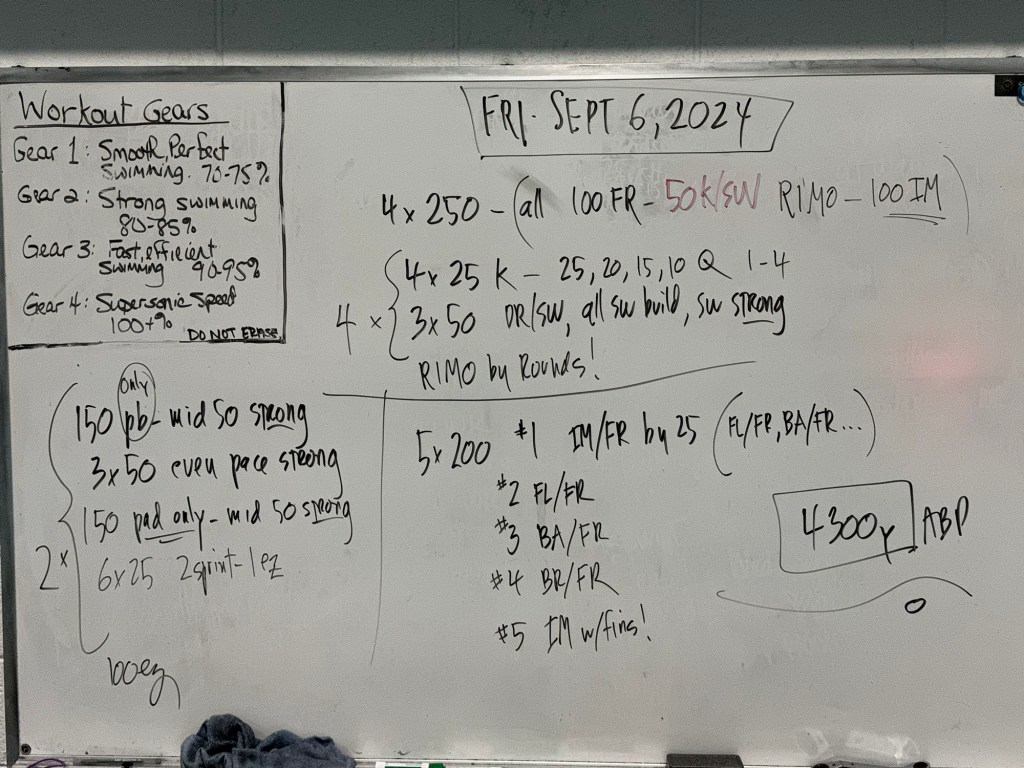 Workout Gears
Gear 1: Smooth, Perfect
Swimming. 70-75%
Gear 2: Strong swimming
80-85%
Gear 3: Fast, efficient
Swimming 90-95%
Gear 4: Supersonic Speed
100+%
DO NOT ERASE
FRI. SEPT 6, 2024
4 x 250 - (all 100 FR - 50 K/SW RIMO - 100 IM)
4 x { 4 x 25 K - 25, 20, 15, 10 Q 1-4
3 x 50 DR/SW, all sw build, sw strong
RIMO by Rounds!
only
150 pb - mid 50 strong
3 x 50 even pace strong
150 pad only - mid 50 strong
2 x
6 x 25 2sprint - 1 ez
100 ez
5 x 200 #1 IM/FR by 25 (FL/FR, BA/FR...)
#2 FL/FR
#3 BA/FR
#4 BR/FR
#5 IM w/fins!
4300y ABP